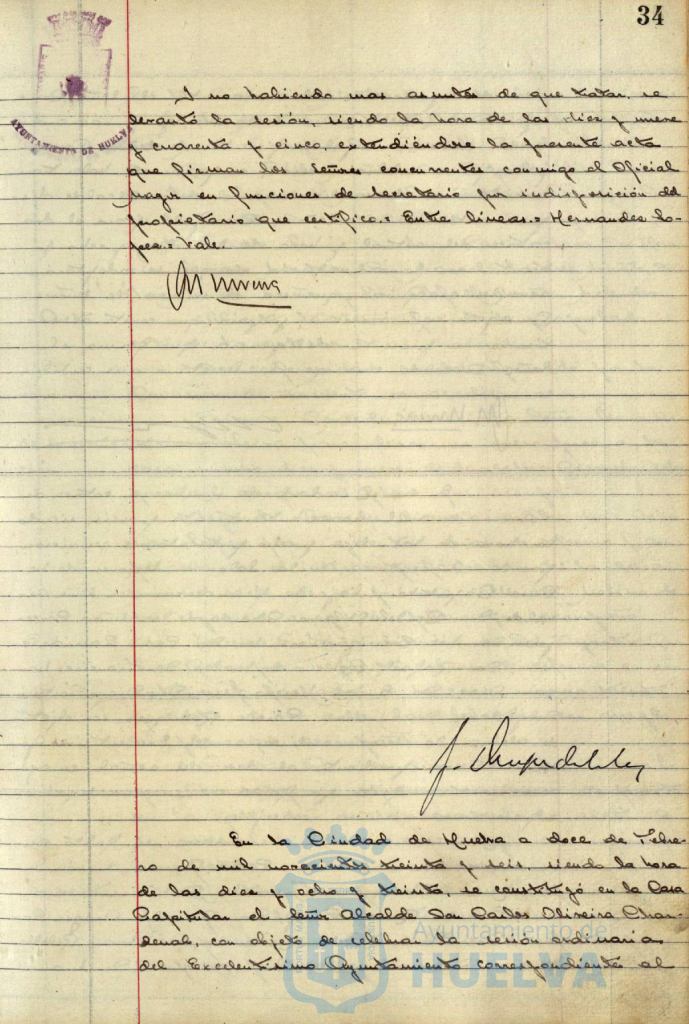 34
AYUNTAMIENTO DE HUELVA
Y no habiendo mas asuntos de que tratar, se
levantó la sesión, siendo la hora de las diez y nueve
y cuarenta y cinco, extendiéndose la presente acta
que firman los Señores concurrentes conmigo el Oficial
Mayor en funciones de Secretario por indisposición del
propietario que certifico.= Entre lineas.= Hernandez Lo-
pez.= Vale.
En la Ciudad de Huelva a doce de Febre-
ro de mil novecientos treinta y seis, siendo la hora
de las diez y ocho y treinta, se constituyó en la Casa
Capitular el Señor Alcalde Don Carlos Oliveira Chan-
denal, con objeto de celebrar la sesión ordinaria
del Excelentísimo Ayuntamiento correspondiente al
Ayuntamiento de
HUELVA